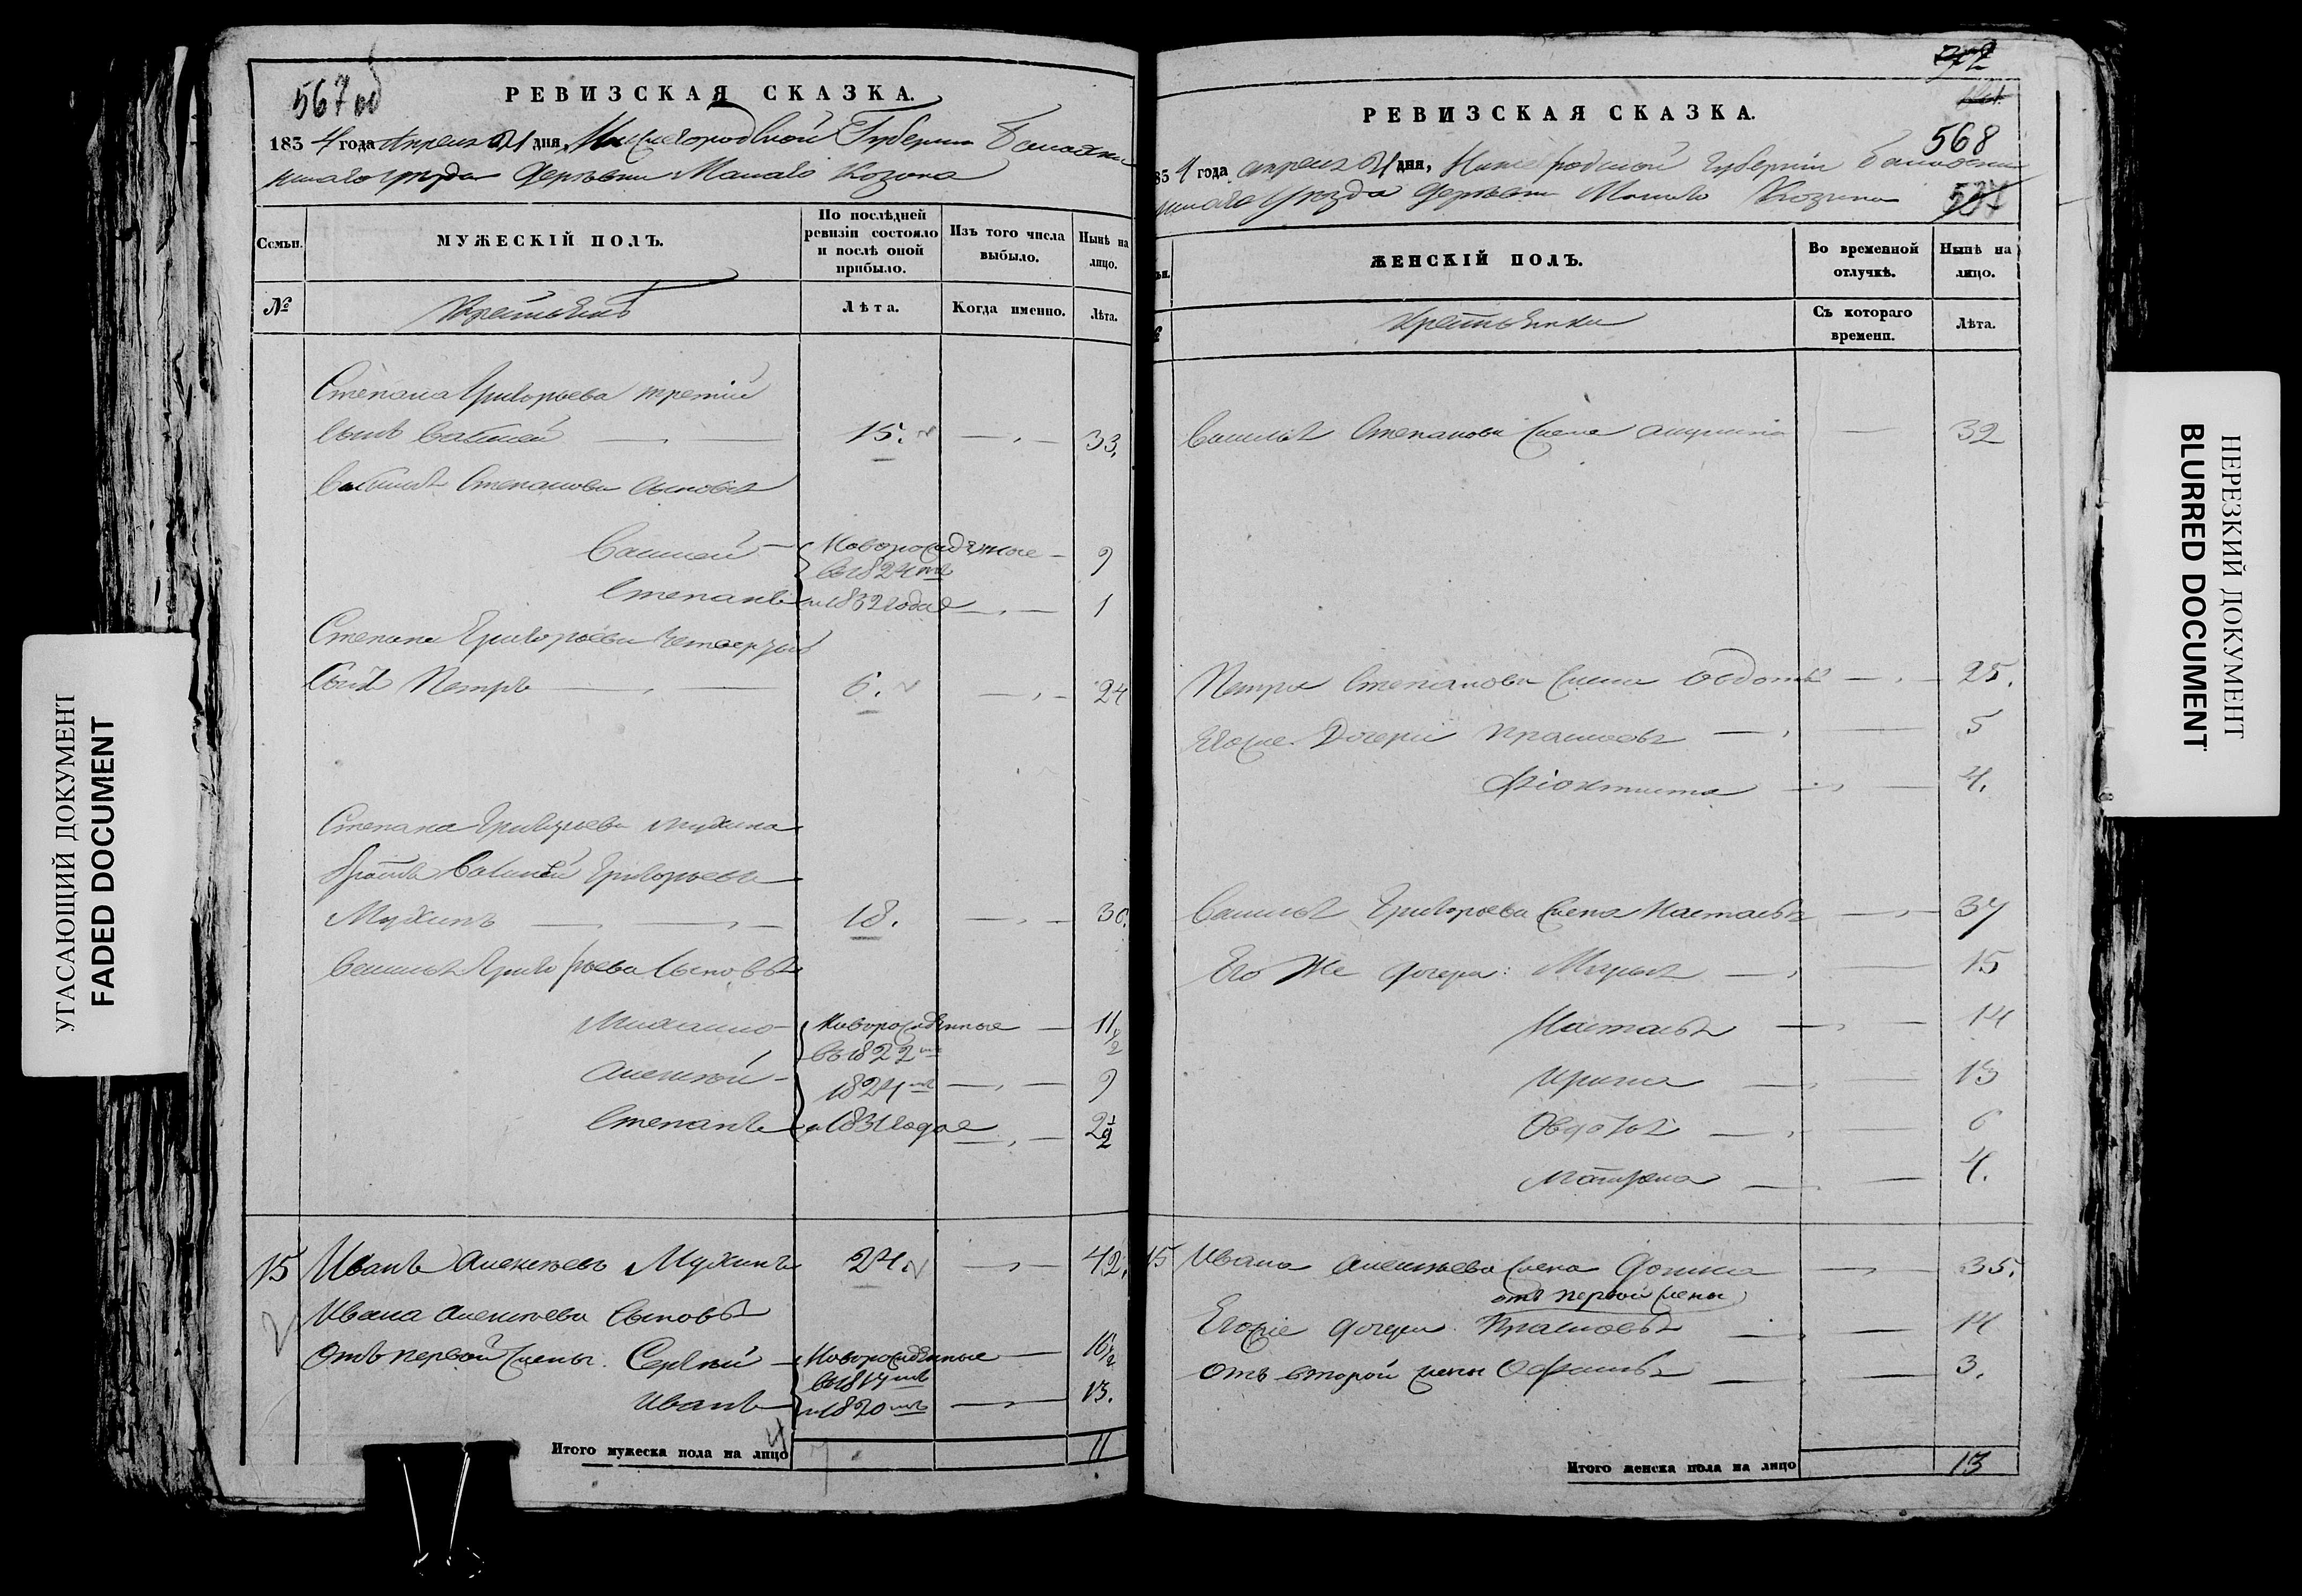 567 об
РЕВИЗСКАЯ СКАЗКА.
1834 года Апреля 21 дня, Нижегородской Губернии Балахни
нскаго уезда Деревни Малаго Козина
Семьи.
МУЖЕСКІЙ ПОЛЪ.
По послѣдней ревизіи состояло и послѣ оной прибыло.
Изъ того числа выбыло.
Нынѣ на лицо.
№
Крестьянъ
Лѣта.
Когда именно.
Лѣта.
Степана Григорьева третий
сынъ Василей 15. 33.
Василья Степанова сыновья
Василей Новорожденные 9
въ 1824мъ
Степанъ и 1832 годах 1
Степана Григорьева четвертый
Сынъ Петръ 6. 24
Степана Григорьева Мухина
братъ Василей Григорьевъ
Мухинъ 18. 36.
Василья Григорьева сыновья
Михайло Новорожденные 11 1/2
въ 1822мъ
Алексей 1824мъ 9
Степанъ и 1831 годах 2 1/2
15 Иванъ Алексеевъ Мухинъ 24. 42.
Ивана Алексеева Сыновья
Отъ первой жены Сергей Новорожденные 16 1/2
въ 1817мъ
Иванъ и 1820мъ 13.
Итого мужеска пола на лицо 11
568
РЕВИЗСКАЯ СКАЗКА.
834 года апреля 21 дня, Нижегородской губернии Балахни
нскаго Уезда Деревни Малаго Козина
ЖЕНСКІЙ ПОЛЪ.
Во временной отлучкѣ.
Нынѣ на лицо.
Крестьянки
Съ котораго времени.
Лѣта.
Василья Степанова жена Акулина 32
Петра Степанова жена Овдотья 25.
Егоже Дочери Прасковья 5
Фіоктиста 4.
Василья Григорьева жена Настасья 37
Его Же дочери: Марья 15
Настасья 14
Ирина 13
Овдотья 6
Матрена 4.
15 Ивана Алексеева жена Домна 35.
отъ первой жены
Егоже дочери Прасковья 14
отъ второй жены Офимья 3.
Итого женска пола на лицо 13
УГАСАЮЩИЙ ДОКУМЕНТ
FADED DOCUMENT
НЕРЕЗКИЙ ДОКУМЕНТ
BLURRED DOCUMENT